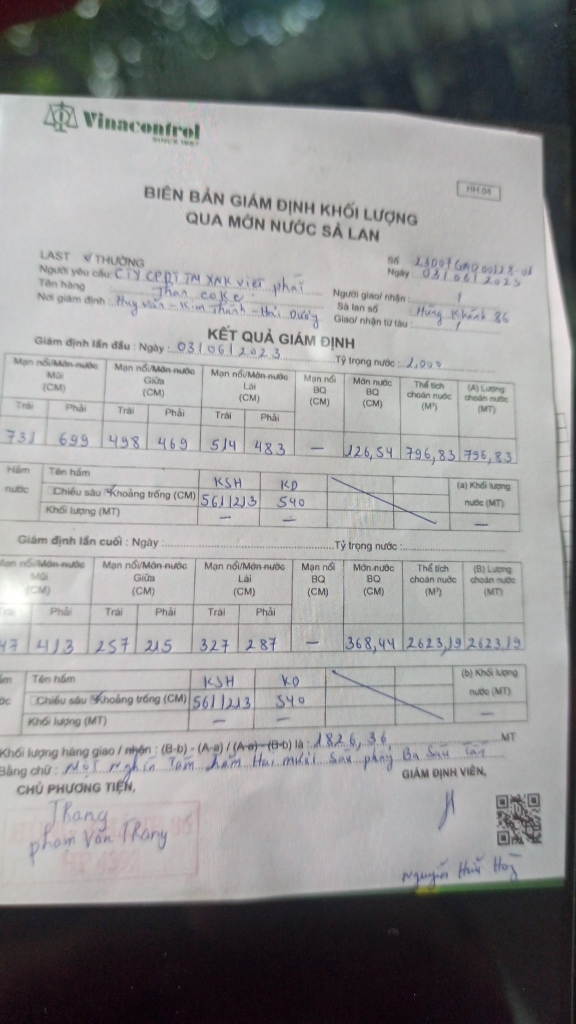 Vinacontrol
SINCE 1957
HH 04
BIÊN BẢN GIÁM ĐỊNH KHỐI LƯỢNG
QUA MỚN NƯỚC SÀ LAN
LAST V THƯỜNG
Số
Người yêu cầu: CTY CPDT TM XNK Việt phát
Ngày
Tên hàng Than coke
Người giao/ nhận : /
Nơi giám định : Huy Văn - Kim Thành - Hải Dương
Sà lan số Hùng Khánh 86
Giao/ nhận từ tàu : /
KẾT QUẢ GIÁM ĐỊNH
Giám định lần đầu : Ngày : 03/06/2023 Tỷ trọng nước : 1,000
Mạn nổi/Mớn nước Mũi (CM) Mạn nổi/Mớn nước Giữa (CM) Mạn nổi/Mớn nước Lái (CM) Mạn nổi BQ (CM) Mớn nước BQ (CM) Thể tích choán nước (M³) (A) Lượng choán nước (MT)
Trái Phải Trái Phải Trái Phải
731 699 498 469 514 483 – 126,54 796,83 796,83
Hầm nước Tên hầm KSH KD (a) Khối lượng nước (MT)
Chiều sâu Khoảng trống (CM) 561/213 540
Khối lượng (MT) – – –
Giám định lần cuối : Ngày : Tỷ trọng nước :
Mạn nổi/Mớn nước Mũi (CM) Mạn nổi/Mớn nước Giữa (CM) Mạn nổi/Mớn nước Lái (CM) Mạn nổi BQ (CM) Mớn nước BQ (CM) Thể tích choán nước (M³) (B) Lượng choán nước (MT)
Trái Phải Trái Phải Trái Phải
47 413 257 215 327 287 – 368,44 2623,19 2623,19
Tên hầm KSH KD (b) Khối lượng nước (MT)
Chiều sâu Khoảng trống (CM) 561/213 540
Khối lượng (MT) – – –
Khối lượng hàng giao / nhận : (B-b) - (A-a) / (A-a) - (B-b) là : 1826,36 MT
Bằng chữ : Một Nghìn Tám trăm Hai mươi Sáu phẩy Ba Sáu Tấn
CHỦ PHƯƠNG TIỆN,
GIÁM ĐỊNH VIÊN,
Trang
phạm Văn Trang
Nguyễn Hữu Hoà